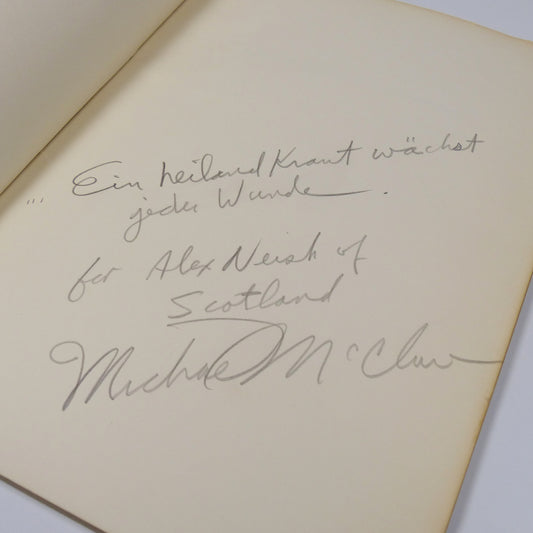 ... Ein heiland Kraut wächst
jeder Wunde.
for Alex Neish of
Scotland
Michael McClure